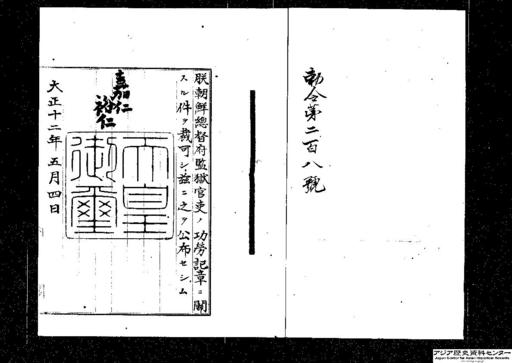 勅令第二百八號
朕朝鮮總督府監獄官吏ノ功勞記章ニ關
スル件ヲ裁可シ茲ニ之ヲ公布セシム
嘉仁
裕仁
天皇
御璽
大正十二年五月四日
アジア歴史資料センター
Japan Center for Asian Historical Records